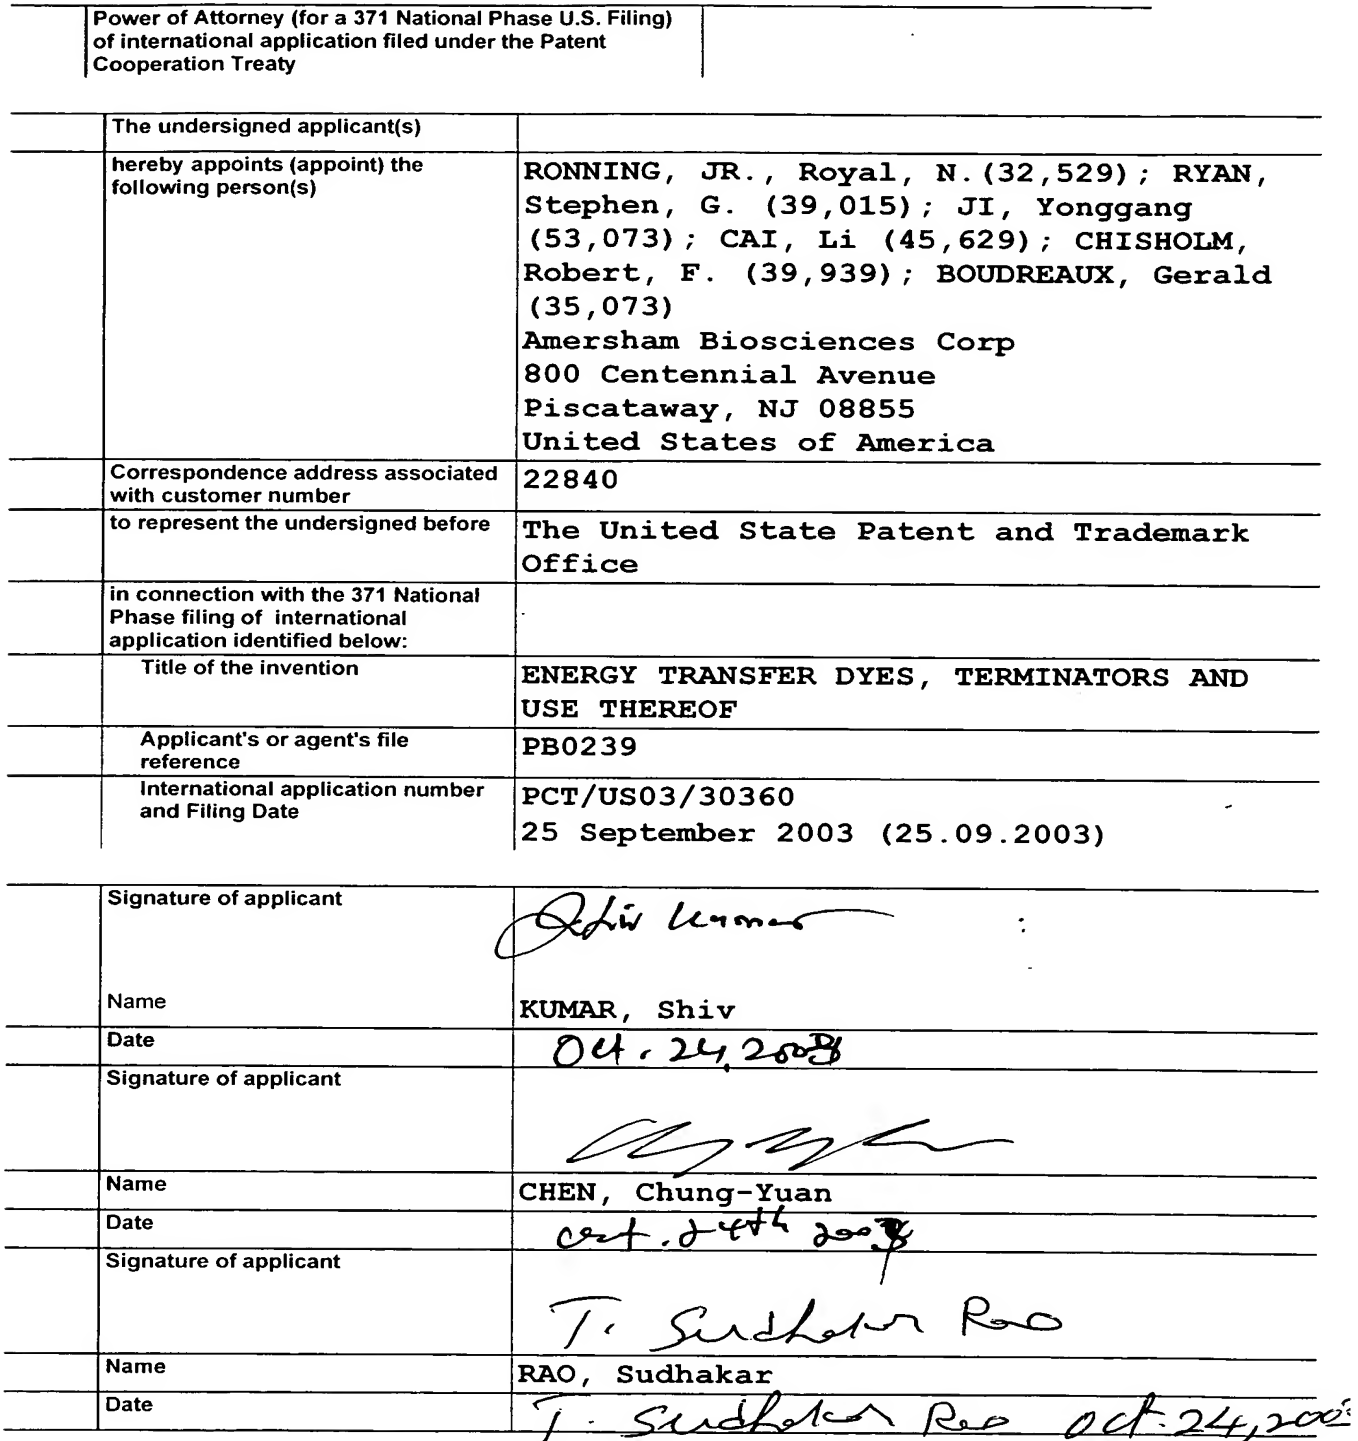 Power of Attorney (for a 371 National Phase U.S. Filing)
of international application filed under the Patent
Cooperation Treaty
The undersigned applicant(s)
hereby appoints (appoint) the
following person(s)
RONNING, JR., Royal, N. (32,529); RYAN,
Stephen, G. (39,015); JI, Yonggang
(53,073); CAI, Li (45,629); CHISHOLM,
Robert, F. (39,939); BOUDREAUX, Gerald
(35,073)
Amersham Biosciences Corp
800 Centennial Avenue
Piscataway, NJ 08855
United States of America
Correspondence address associated
with customer number
22840
to represent the undersigned before
The United State Patent and Trademark
Office
in connection with the 371 National
Phase filing of international
application identified below:
Title of the invention
ENERGY TRANSFER DYES, TERMINATORS AND
USE THEREOF
Applicant's or agent's file
reference
PB0239
International application number
and Filing Date
PCT/US03/30360
25 September 2003 (25.09.2003)
Signature of applicant
Shiv Kumar
Name
KUMAR, Shiv
Date
Oct. 24, 2003
Signature of applicant
Name
CHEN, Chung-Yuan
Date
Oct. 24th
Signature of applicant
T. Sudhakar Rao
Name
RAO, Sudhakar
Date
T. Sudhakar Rao Oct. 24, 2003